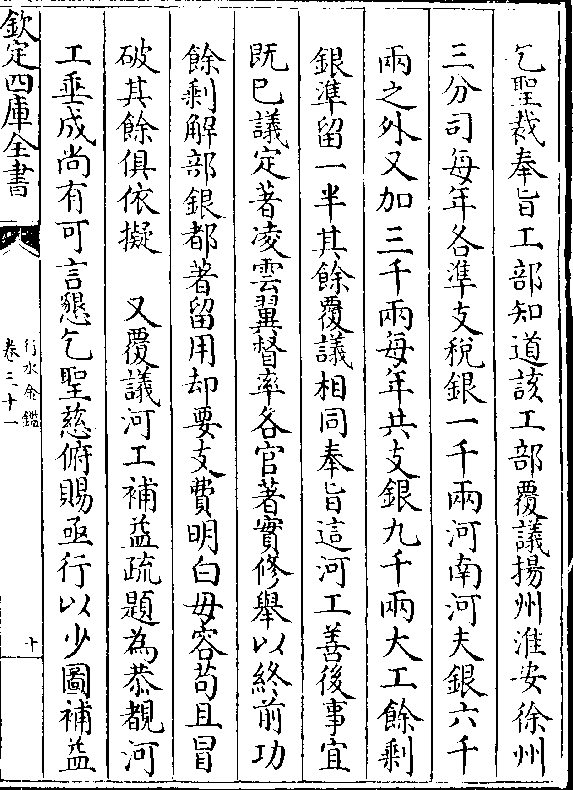 乞聖裁奉旨工部知道該工部覆議揚州淮安徐州
三分司每年各準支稅銀一千兩河南河夫銀六千
兩之外又加三千兩每年共支銀九千兩大工餘剩
銀準留一半其餘覆議相同奉旨這河工善後事宜
既已議定著凌雲翼督率各官著實修舉以終前功
餘剩解部銀都著留用却要支費明白毋容苟且冒
破其餘俱依擬　又覆議河工補益疏題為恭覩河
工垂成尚有可言懇乞聖慈俯賜亟行以少圖補益
欽定四庫全書
行水金鑑
卷三十一
十